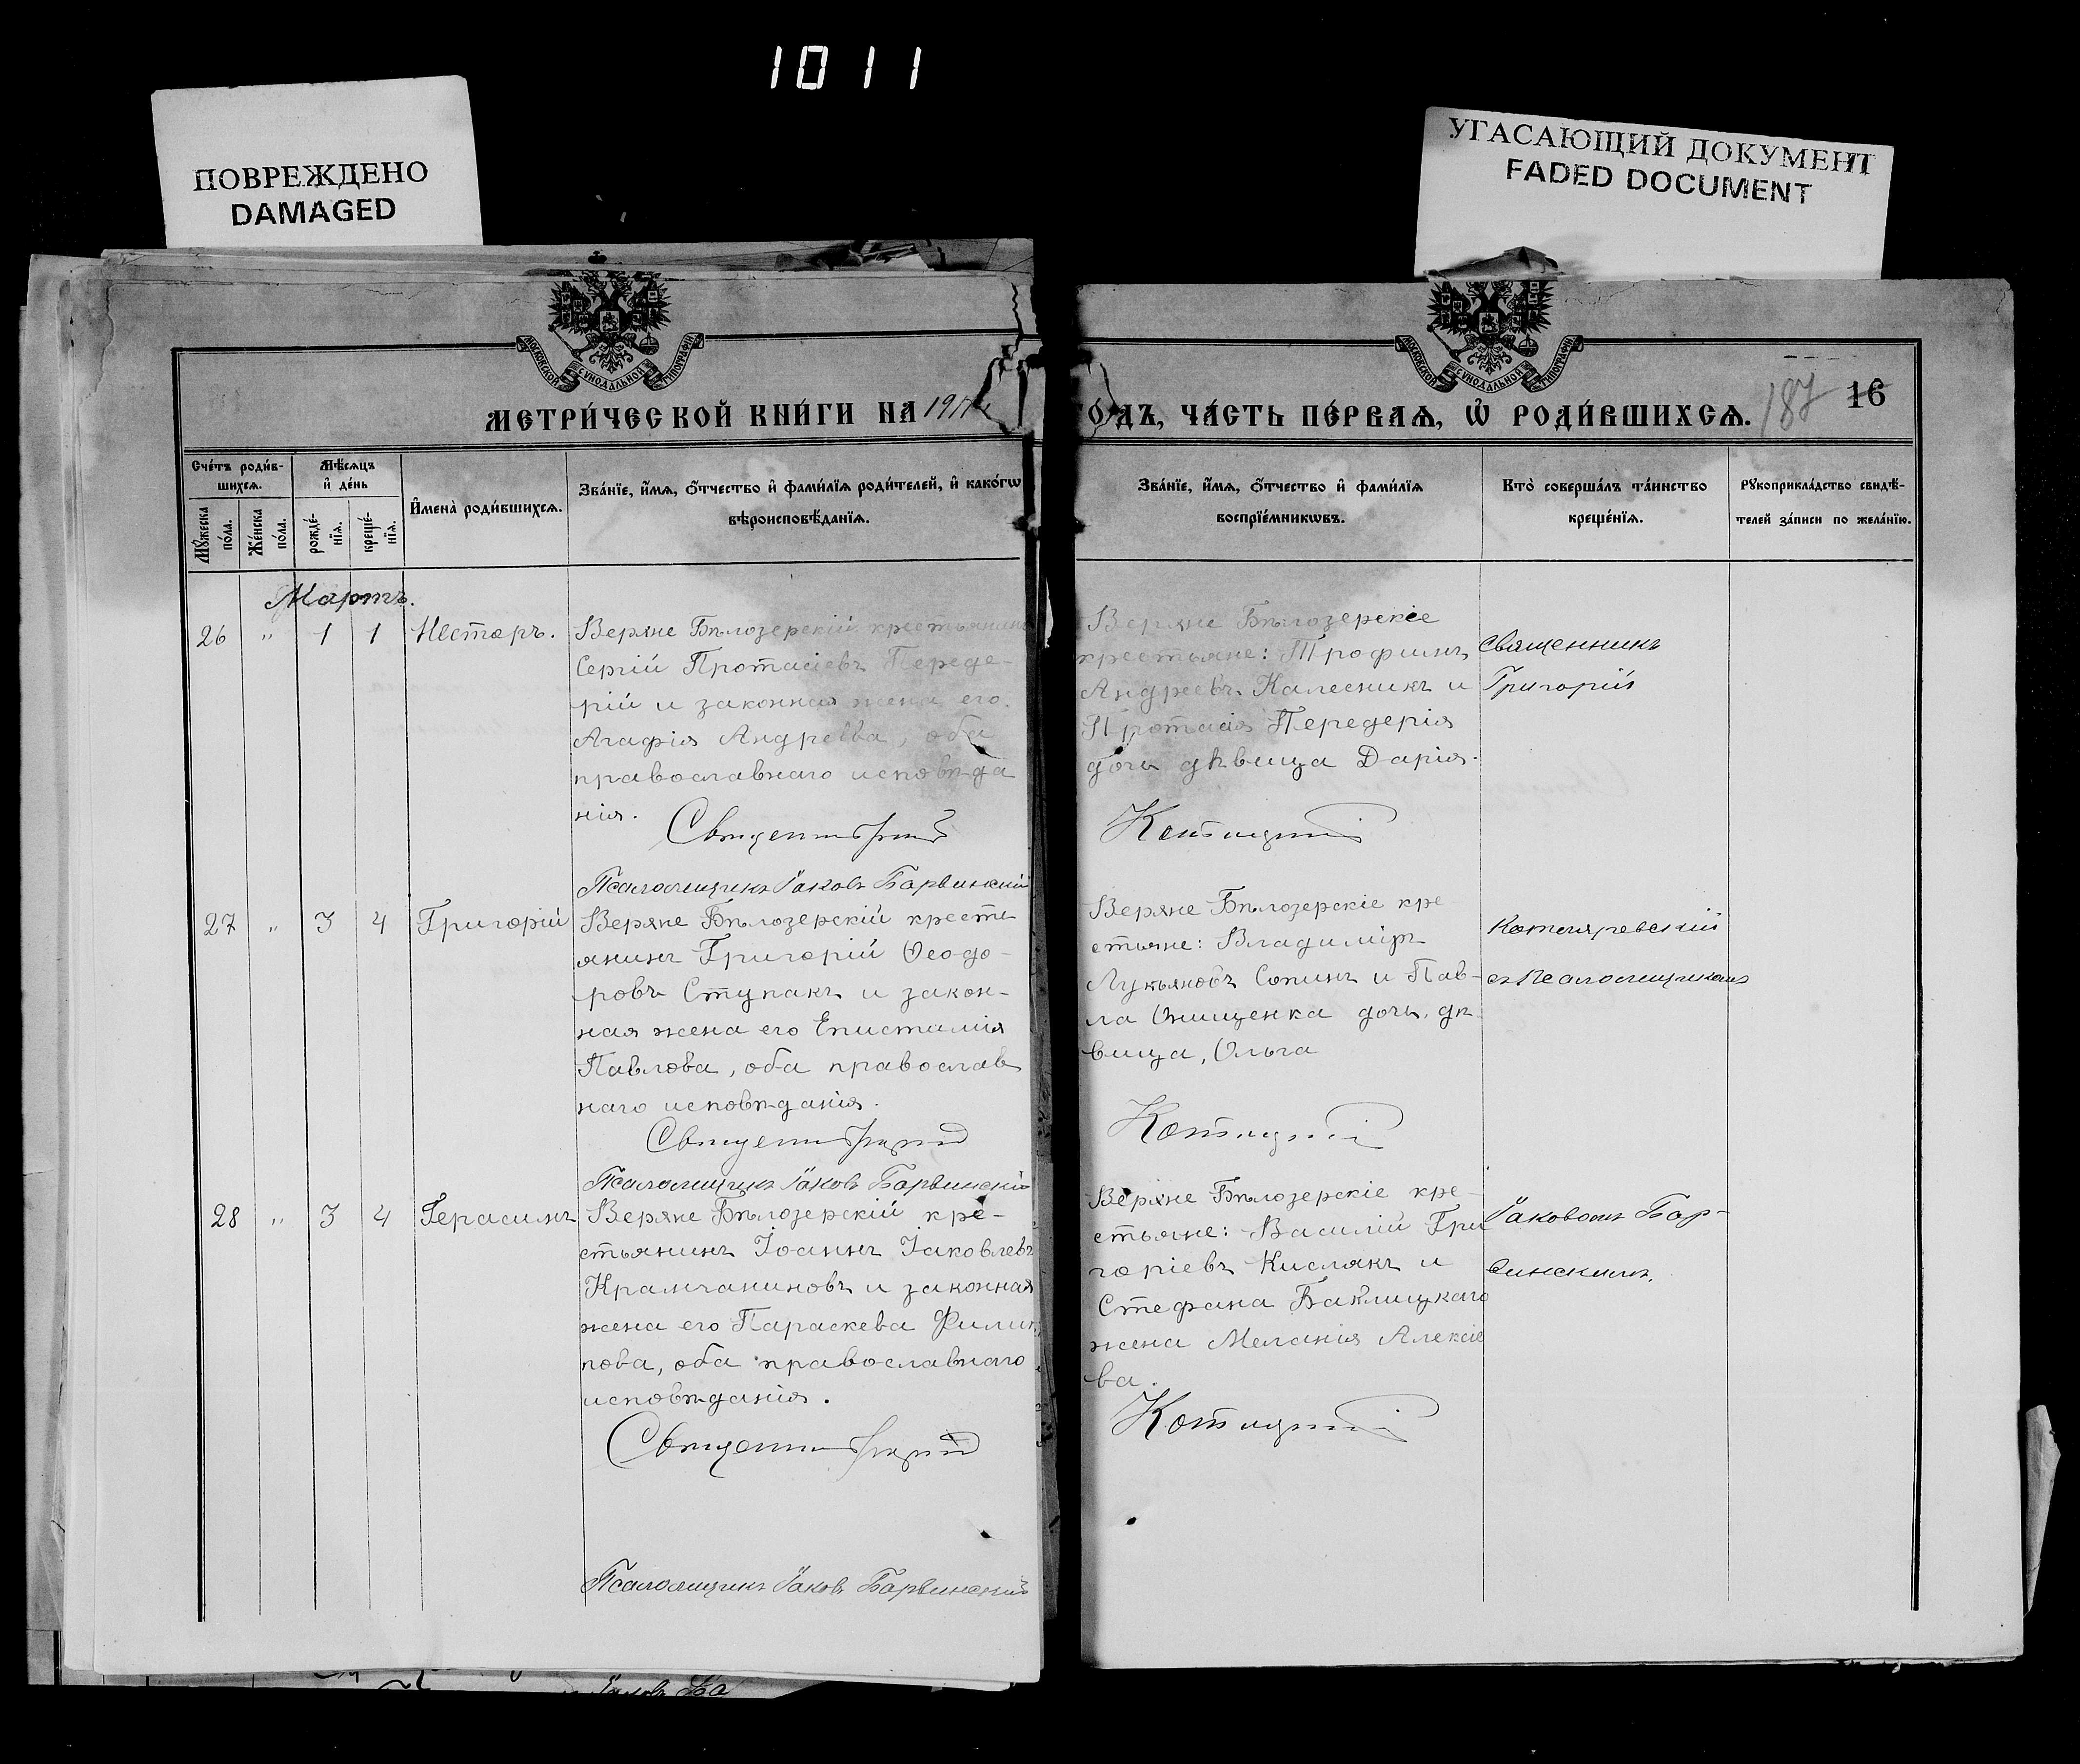 1011
ПОВРЕЖДЕНО
DAMAGED
УГАСАЮЩИЙ ДОКУМЕНТ
FADED DOCUMENT
МОСКОВСКОЙ СУНОДАЛЬНОЙ ТИПОГРАФІИ
МОСКОВСКОЙ СУНОДАЛЬНОЙ ТИПОГРАФІИ
МЕТРИ́ЧЕСКОЙ КНИ́ГИ НА
ГОДЪ, ЧА́СТЬ ПЕ́РВАѦ, Ѿ РОДИ́ВШИХСѦ.
187 16
Сче́тъ роди́в-
шихсѧ.
Мꙋ́жеска
по́ла.
Же́нска
по́ла.
Мѣ́сѧцъ
и҆ де́нь
рожде́-
нїѧ.
креще́-
нїѧ.
И҆мена̀ роди́вшихсѧ.
Зва́нїе, и҆́мѧ, ѻ҆́тчество и҆ фами́лїѧ роди́телей, и҆ како́гѡ
вѣроисповѣ́данїѧ.
Зва́нїе, и҆́мѧ, ѻ҆́тчество и҆ фами́лїѧ
воспрїе́мникѡвъ.
Кто̀ соверша́лъ та́инство
креще́нїѧ.
Рꙋкоприкла́дство свидѣ́-
телей за́писи по жела́нїю.
Мартъ.
26 " 1 1 Несторъ.
Веряне Бѣлозерскій крестьянинъ
Сергій Протасіевъ Переде-
рій и законная жена его
Агафія Андреева, оба
православнаго исповѣда
нія.
Веряне Бѣлозерскіе
крестьяне: Трофимъ
Андреевъ Калесникъ и
Протасія Передерія
дочь дѣвица Дарія.
Священникъ
Григорій
Псаломщикъ Іаковъ Барвинскій
27 " 3 4 Григорій
Веряне Бѣлозерскій кресть
янинъ Григорій Ѳеодо-
ровъ Ступакъ и закон-
ная жена его Епистимія
Павлова, оба православ
наго исповѣданія.
Веряне Бѣлозерскіе кре
стьяне: Владиміръ
Лукьяновъ Сопинъ и Пав-
ла Онищенка дочь, дѣ
вица, Ольга
Котляревскій
съ Псаломщикомъ
Псаломщикъ Іаковъ Барвинскій
28 " 3 4 Герасимъ
Веряне Бѣлозерскій кре-
стьянинъ Іоаннъ Іаковлевъ
Крамчаниновъ и законная
жена его Параскева Филип
пова, оба православнаго
исповѣданія.
Веряне Бѣлозерскіе кре-
стьяне: Василій Гри
горіевъ Кислякъ и
Стефана Баклицкаго
жена Меланія Алексіе
ва.
Іаковомъ Бар-
винскимъ.
Псаломщикъ Іаковъ Барвинскій